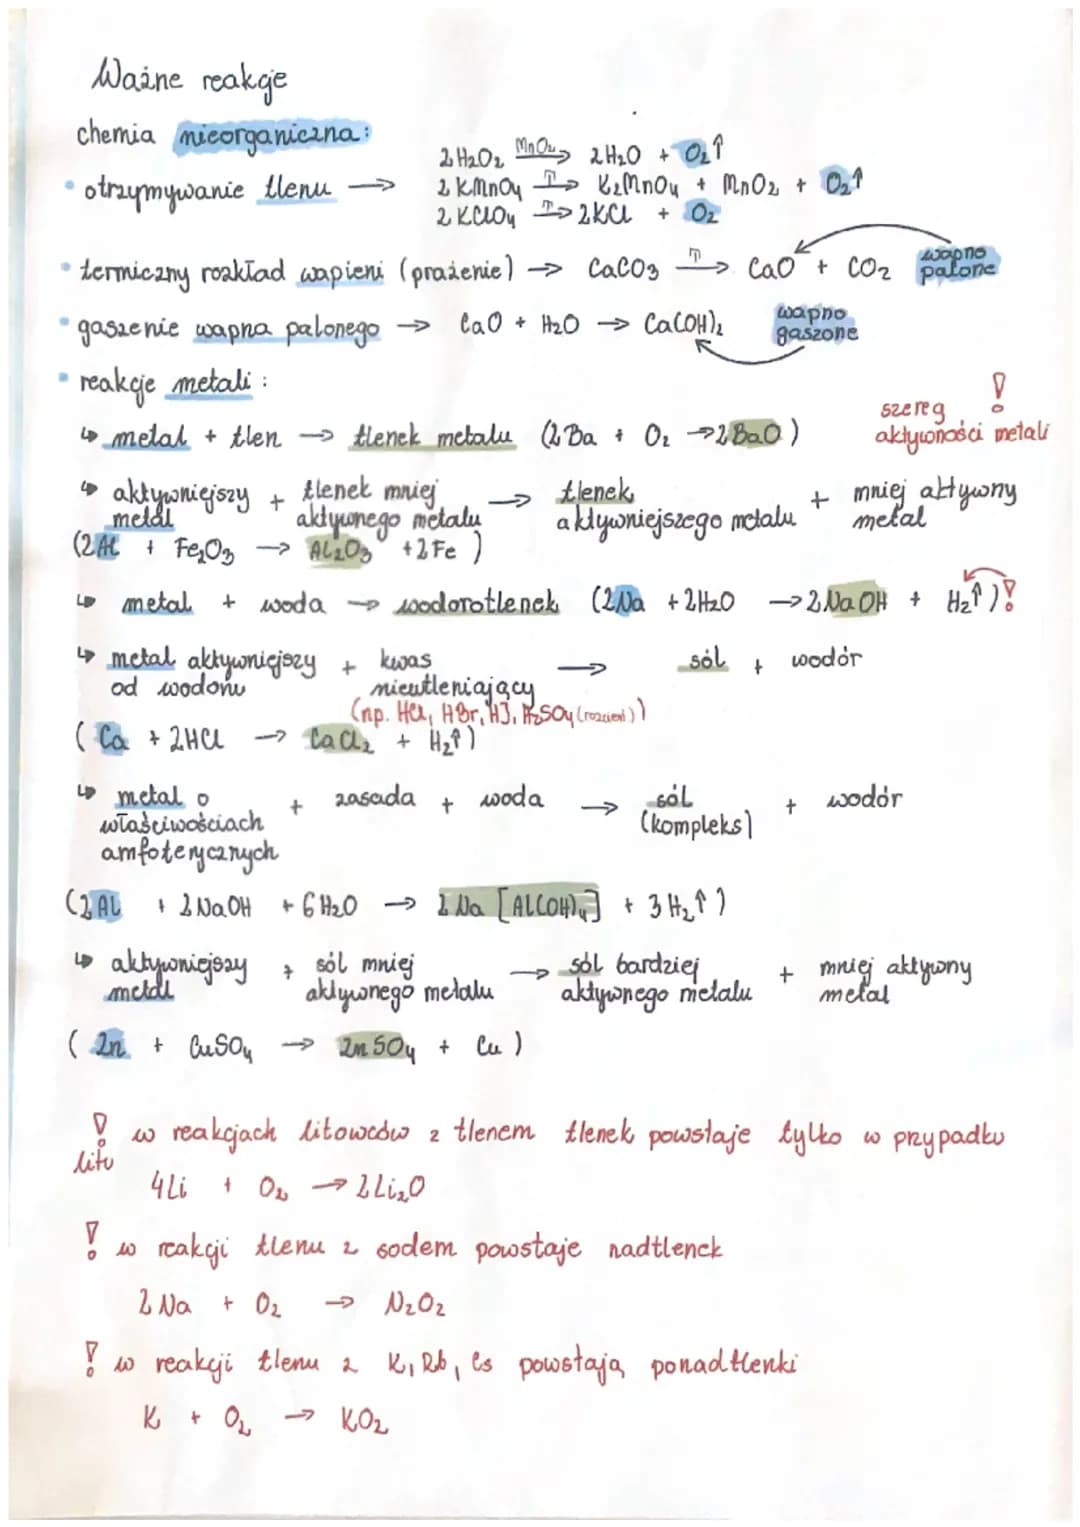 Ważne reakcje
chemia nieorganiczna:
• otrzymywanie tlenu →
2 H₂O₂ MnO₂→ 2 H₂O + O₂↑
2 KMnO₄ T→ K₂MnO₄ + MnO₂ + O₂↑
2 KClO₄ T→ 2 KCl + O₂
• termiczny rozkład wapieni (prażenie) → CaCO₃ T→ CaO + CO₂ wapno palone
• gaszenie wapna palonego → CaO + H₂O → Ca(OH)₂ wapno gaszone
• reakcje metali :
szereg !
aktywności metali
↳ metal + tlen → tlenek metalu (2 Ba + O₂ → 2 BaO)
↳ aktywniejszy metal + tlenek mniej aktywnego metalu → tlenek aktywniejszego metalu + mniej aktywny metal
(2Al + Fe₂O₃ → Al₂O₃ + 2 Fe )
↳ metal + woda → wodorotlenek (2Na + 2H₂O → 2NaOH + H₂↑)!
↳ metal aktywniejszy od wodoru + kwas nieutleniający → sól + wodór
(np. HCl, HBr, HJ, H₂SO₄ (rozcień))
( Ca + 2HCl → CaCl₂ + H₂↑)
↳ metal o właściwościach amfoterycznych + zasada + woda → sól (kompleks) + wodór
(2 Al + 2 NaOH + 6 H₂O → 2 Na [Al(OH)₄] + 3 H₂↑ )
↳ aktywniejszy metal + sól mniej aktywnego metalu → sól bardziej aktywnego metalu + mniej aktywny metal
( Zn + CuSO₄ → ZnSO₄ + Cu )
! w reakcjach litowców z tlenem tlenek powstaje tylko w przypadku
litu
4 Li + O₂ → 2 Li₂O
! w reakcji tlenu z sodem powstaje nadtlenek
2 Na + O₂ → N₂O₂
! w reakcji tlenu z K, Rb, Cs powstają ponadtlenki
K + O₂ → KO₂